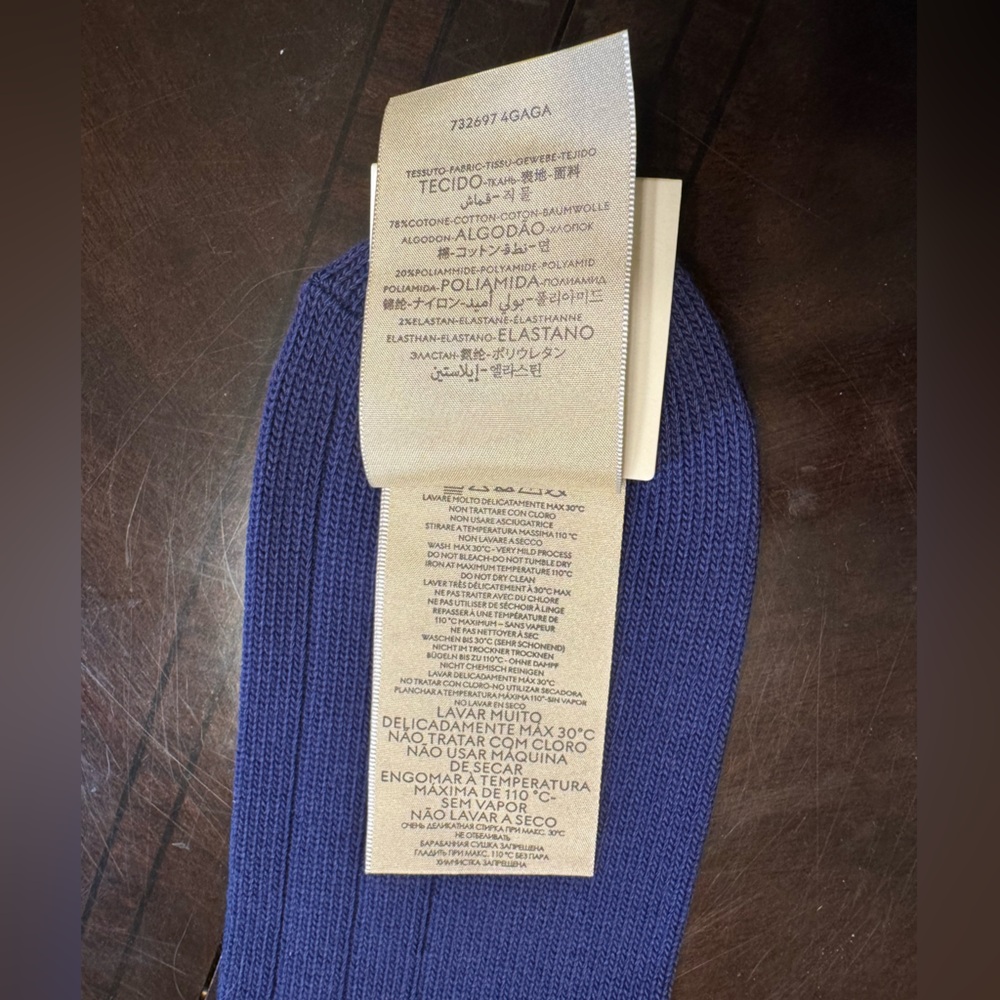 732697 4GAGA
TESSUTO-FABRIC-TISSU-GEWEBE-TEJIDO
TECIDO-ТКАНЬ-表地-面料
قماش-직물
78%COTONE-COTTON-COTON-BAUMWOLLE
ALGODON-ALGODÃO-ХЛОПОК
棉-コットン-قطن-면
20%POLIAMMIDE-POLYAMIDE-POLYAMID
POLIAMIDA-POLIAMIDA-ПОЛИАМИД
锦纶-ナイロン-بولي أميد-폴리아미드
2%ELASTAN-ELASTANE-ÉLASTHANNE
ELASTHAN-ELASTANO-ELASTANO
ЭЛАСТАН-氨纶-ポリウレタン
إيلاستين-엘라스틴
LAVARE MOLTO DELICATAMENTE MÁX 30°C
NON TRATTARE CON CLORO
NON USARE ASCIUGATRICE
STIRARE A TEMPERATURA MASSIMA 110 °C
NON LAVARE A SECCO
WASH MAX 30°C - VERY MILD PROCESS
DO NOT BLEACH-DO NOT TUMBLE DRY
IRON AT MAXIMUM TEMPERATURE 110°C
DO NOT DRY CLEAN
LAVER TRÈS DÉLICATEMENT À 30°C MAX
NE PAS TRAITER AVEC DU CHLORE
NE PAS UTILISER DE SÉCHOIR À LINGE
REPASSER À UNE TEMPÉRATURE DE
110 °C MAXIMUM – SANS VAPEUR
NE PAS NETTOYER À SEC
WASCHEN BIS 30°C (SEHR SCHONEND)
NICHT IM TROCKNER TROCKNEN
BÜGELN BIS ZU 110°C - OHNE DAMPF
NICHT CHEMISCH REINIGEN
LAVAR DELICADAMENTE MÁX 30°C
NO TRATAR CON CLORO-NO UTILIZAR SECADORA
PLANCHAR A TEMPERATURA MÁXIMA 110°-SIN VAPOR
NO LAVAR EN SECO
LAVAR MUITO
DELICADAMENTE MÁX 30°C
NÃO TRATAR COM CLORO
NÃO USAR MÁQUINA
DE SECAR
ENGOMAR À TEMPERATURA
MÁXIMA DE 110 °C-
SEM VAPOR
NÃO LAVAR A SECO
ОЧЕНЬ ДЕЛИКАТНАЯ СТИРКА ПРИ МАКС. 30°C
НЕ ОТБЕЛИВАТЬ
БАРАБАННАЯ СУШКА ЗАПРЕЩЕНА
ГЛАДИТЬ ПРИ МАКС. 110 °C БЕЗ ПАРА
ХИМЧИСТКА ЗАПРЕЩЕНА